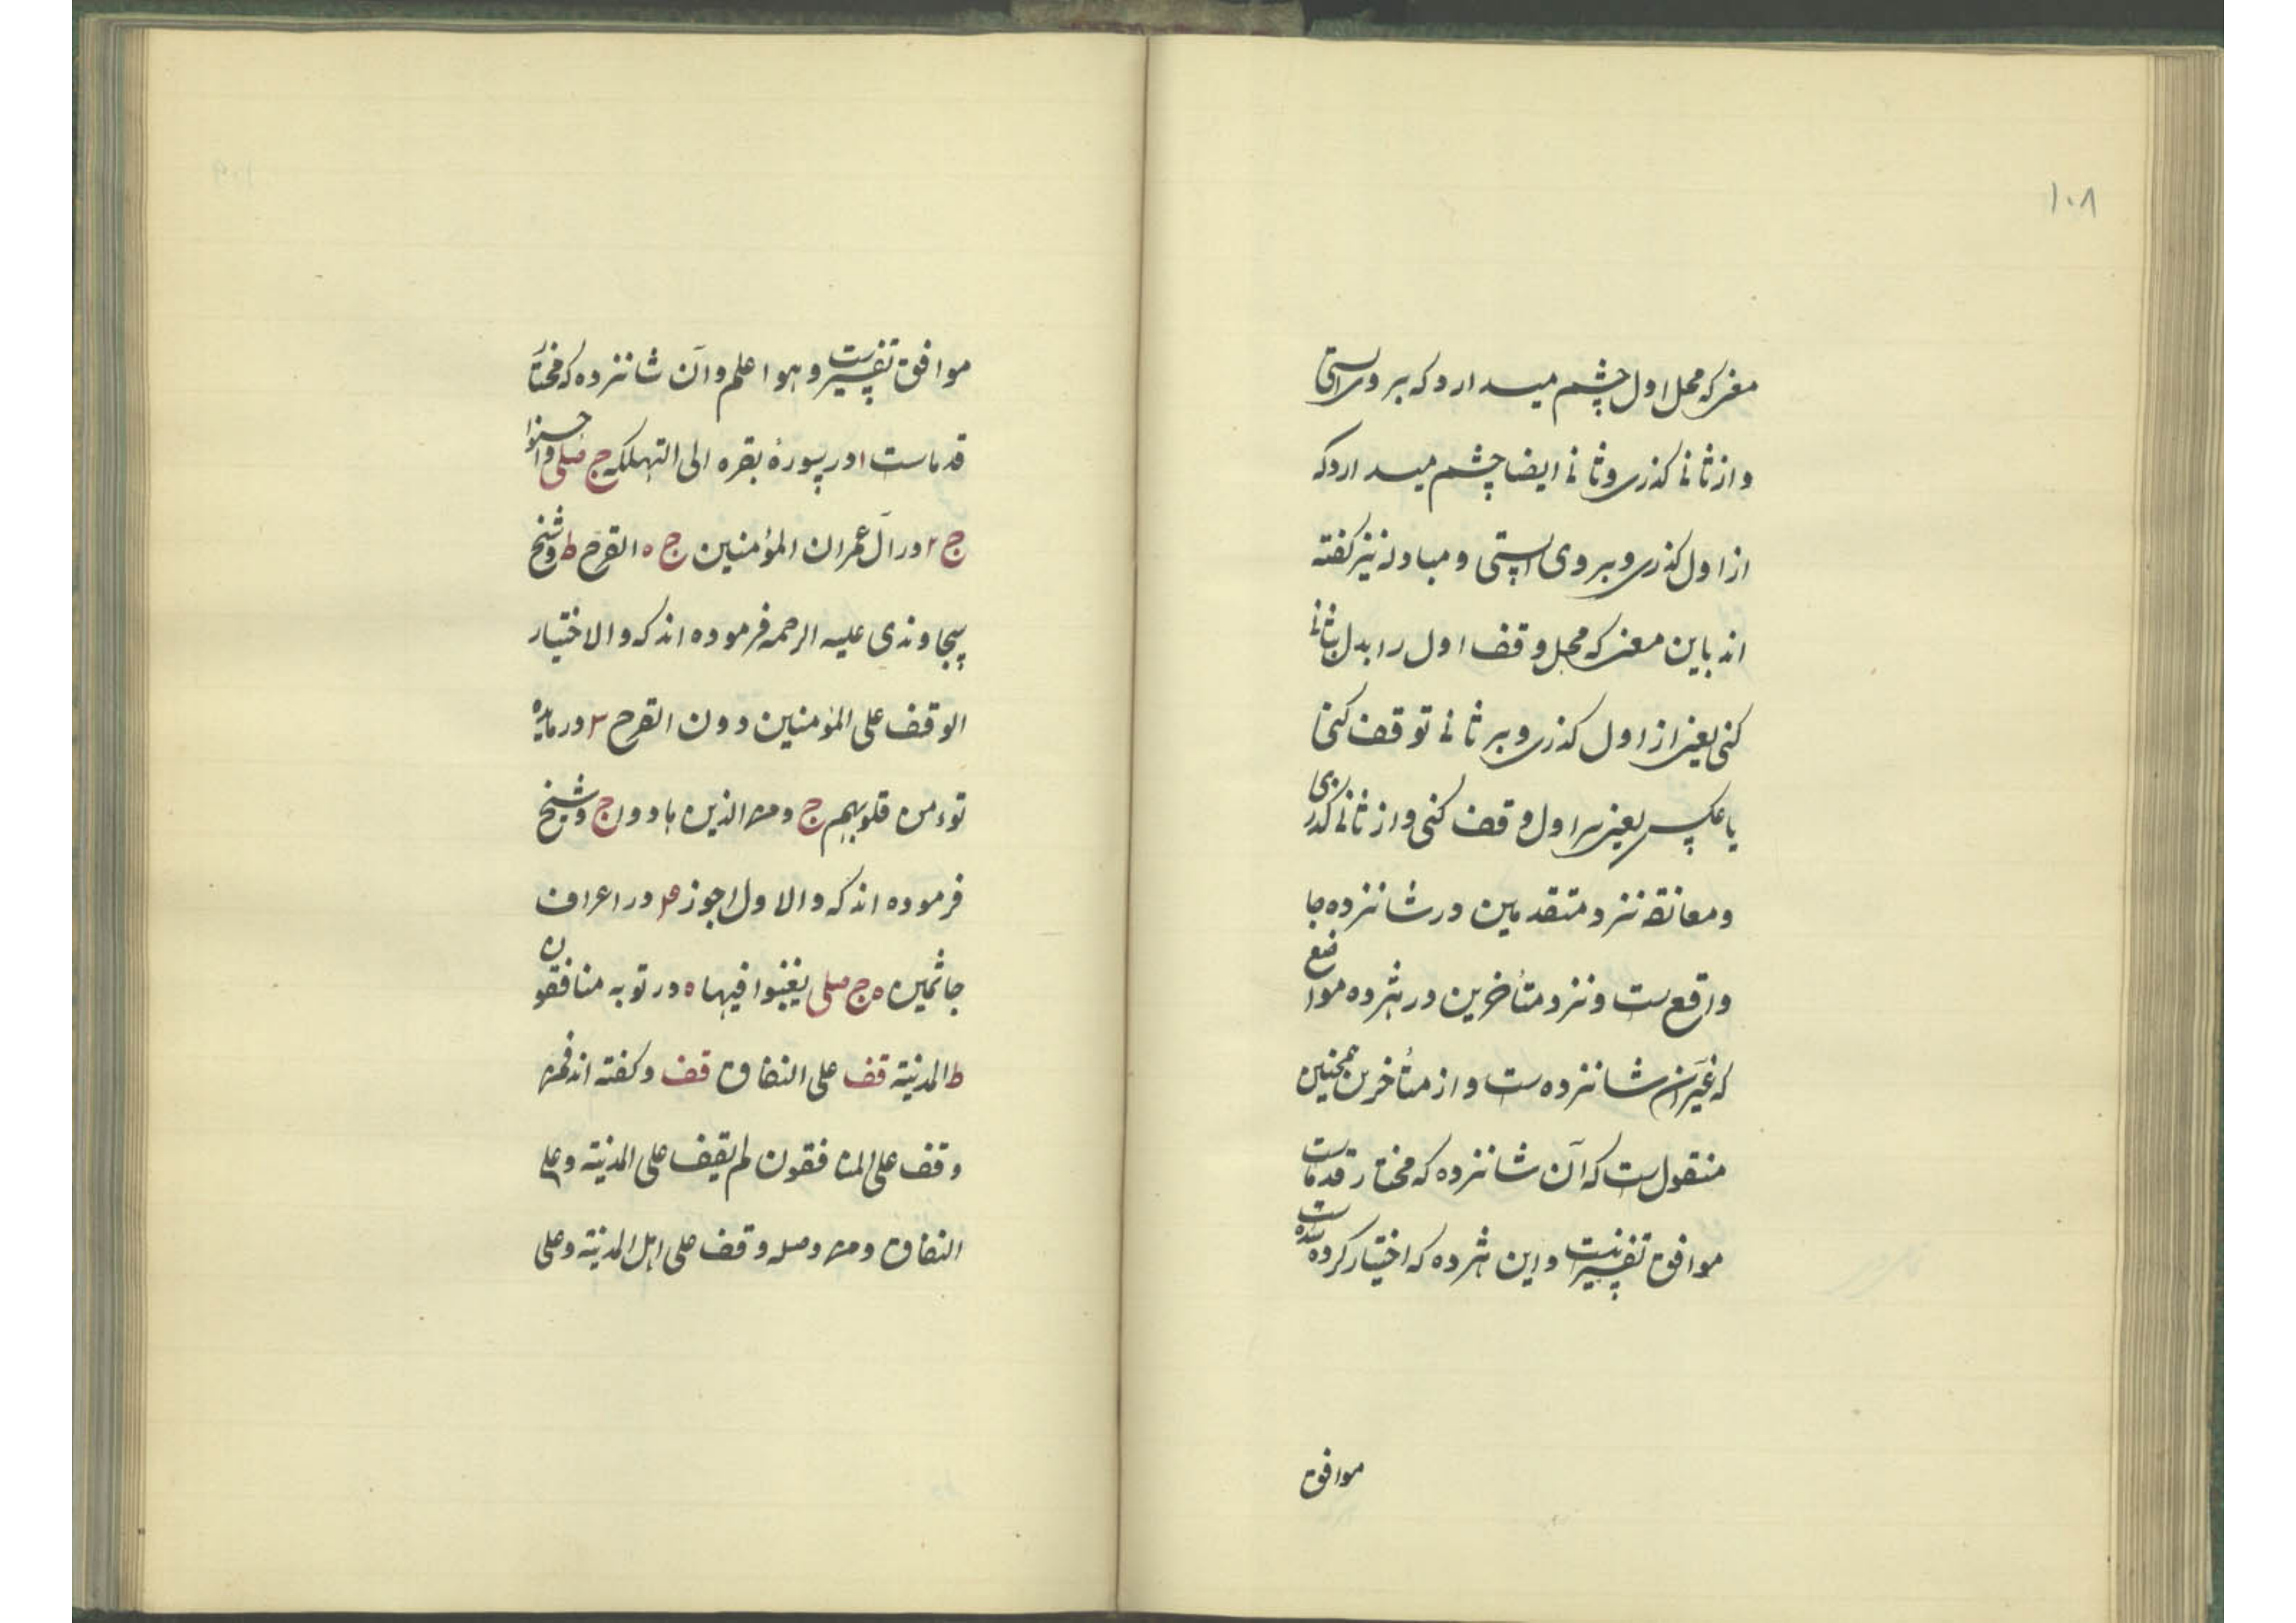 ۱۰۸
معنی که محل اول چشم میدارد که بروی ایستی
و از ثانی گذری و ثانی ایضا چشم میدارد که
از اول گذری و بروی ایستی و مبادله نیز گفته
اند باین معنی که محل وقف اول را بدل بثانی
کنی یعنی از اول گذری و بر ثانی توقف کنی
یا عکس یعنی بر اول وقف کنی و از ثانی گذری
و معانقه نزد متقدمین در شانزده جا
واقع ست و نزد متأخرین در هژده مواضع
که غیر آن شانزده ست و از متأخرین همچنین
منقول ست که آن شانزده که مختار قدماست
موافق تفسیر نیست و این هژده که اختیار کرده شده ست
موافق
موافق تفسیرست و هو اعلم و آن شانزده که مختار
قدماست ۱ در سورهٔ بقره الی التهلکه ج صلی و احسنوا
ج ۲ در آل عمران المؤمنین ج ه القرح ط و شیخ
سجاوندی علیه الرحمه فرموده اند که و الاختیار
الوقف علی المؤمنین دون القرح ۳ در مایده
تؤمن قلوبهم ج ومن الذین هادوا ج و شیخ
فرموده اند که و الاول اجوز ۴ در اعراف
جاثمین ه ج صلی یغنوا فیها ه در توبه منافقون
ط المدینة قف علی النفاق قف و گفته اند فمن
وقف علی المنافقون لم یقف علی المدینة و علی
النفاق و من وصله وقف علی اهل المدینة و علی